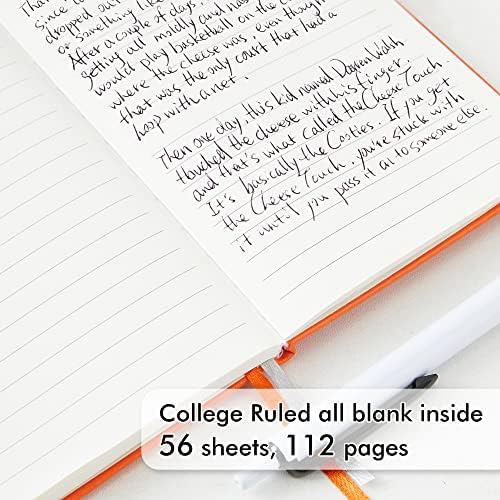 Since
dropped out
or something like
After a couple of days,
getting all mildly and
would play basketball on the
where the cheese was, even though
that was the only court that had a
Loop with a net.
Then one day, this kid named Darren
touched the cheese with his finger,
and that's what called the Cheese Touch
It's basically the Costies. If you get
the Cheese Touch, you're stuck with
it until you pass it on to someone else.
College Ruled all blank inside
56 sheets, 112 pages